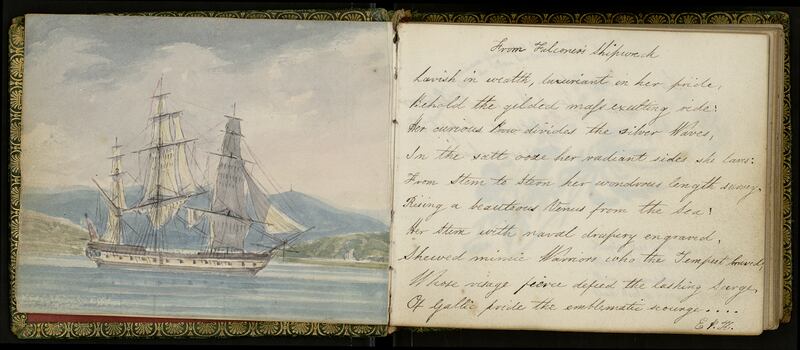 From Falconer's Shipwreck
Lavish in wealth, luxuriant in her pride,
Behold the gilded mass exulting ride!
Her curious Prow divides the silver Waves,
In the salt ooze her radiant sides she laves:
From Stem to Stern her wondrous length survey
Rising a beauteous Venus from the Sea!
Her Stem with naval drapery engraved,
Shewed mimic Warriors who the Tempest braved;
Whose visage fierce defied the lashing Surge,
Of Gallic pride the emblematic scourge....